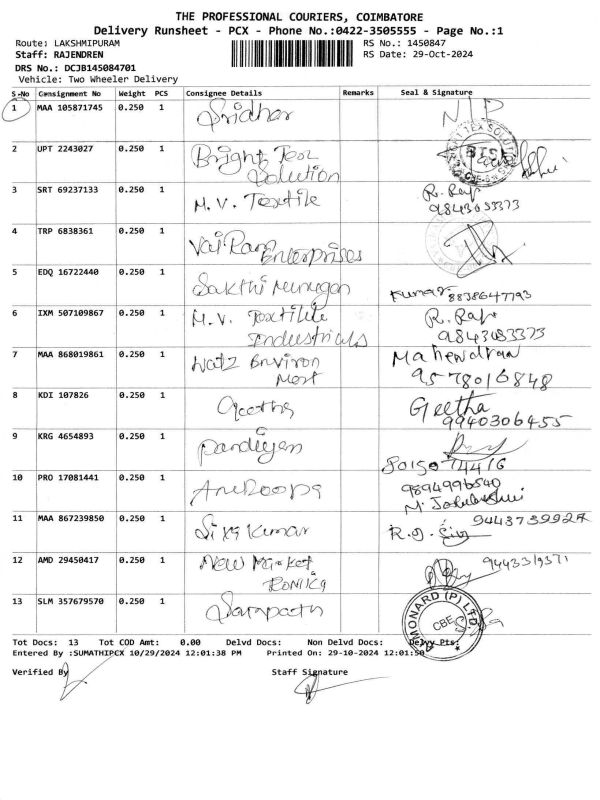 THE PROFESSIONAL COURIERS, COIMBATORE
Delivery Runsheet - PCX - Phone No.:0422-3505555 - Page No.:1
Route: LAKSHMIPURAM RS No.: 1450847
Staff: RAJENDREN RS Date: 29-Oct-2024
DRS No.: DCJB145084701
Vehicle: Two Wheeler Delivery
S.No Consignment No Weight PCS Consignee Details Remarks Seal & Signature
1 MAA 105871745 0.250 1 Sridhar N/P
2 UPT 2243027 0.250 1 Bright Tex
Solution
3 SRT 69237133 0.250 1 M.V. Textile R. Raja
4 TRP 6838361 0.250 1 Vai Ram
Enterprises
5 EDQ 16722440 0.250 1 Sakthi Murugan Kumar 8838647793
6 IXM 507109867 0.250 1 M.V. Textile R. Raja
Industrials
7 MAA 868019861 0.250 1 Watz Environ Mahendran
Ment 9578016848
8 KDI 107826 0.250 1 Geetha Geetha
9940306455
9 KRG 4654893 0.250 1 Pandiyan
80150 74416
10 PRO 17081441 0.250 1 9894996540
11 MAA 867239850 0.250 1 Siva Kumar
12 AMD 29450417 0.250 1 New Market
13 SLM 357679570 0.250 1 Sampath MONARD (P) LTD
CBE
Tot Docs: 13 Tot COD Amt: 0.00 Delvd Docs: Non Delvd Docs: Delvy Pts:
Entered By :SUMATHIPCX 10/29/2024 12:01:38 PM Printed On: 29-10-2024 12:01:50
Verified By Staff Signature